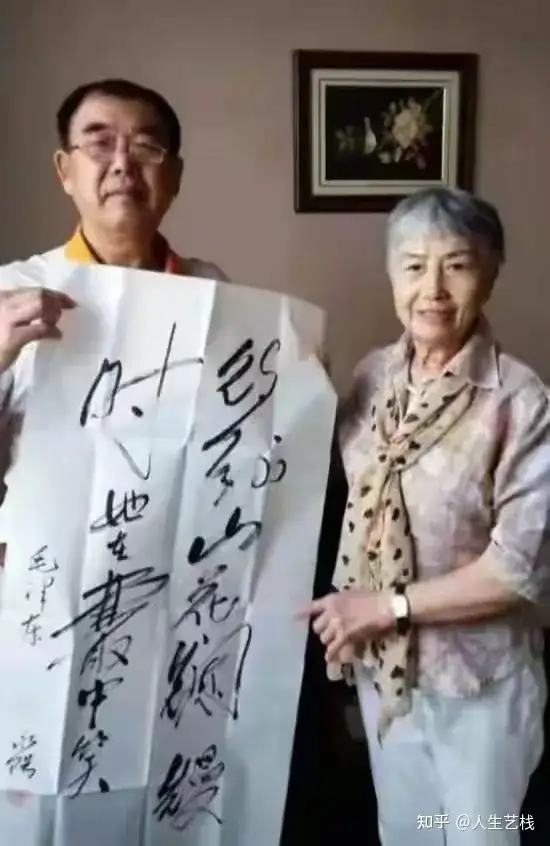 待到山花爛熳
时她在叢中笑
毛泽东
知乎 @人生艺栈